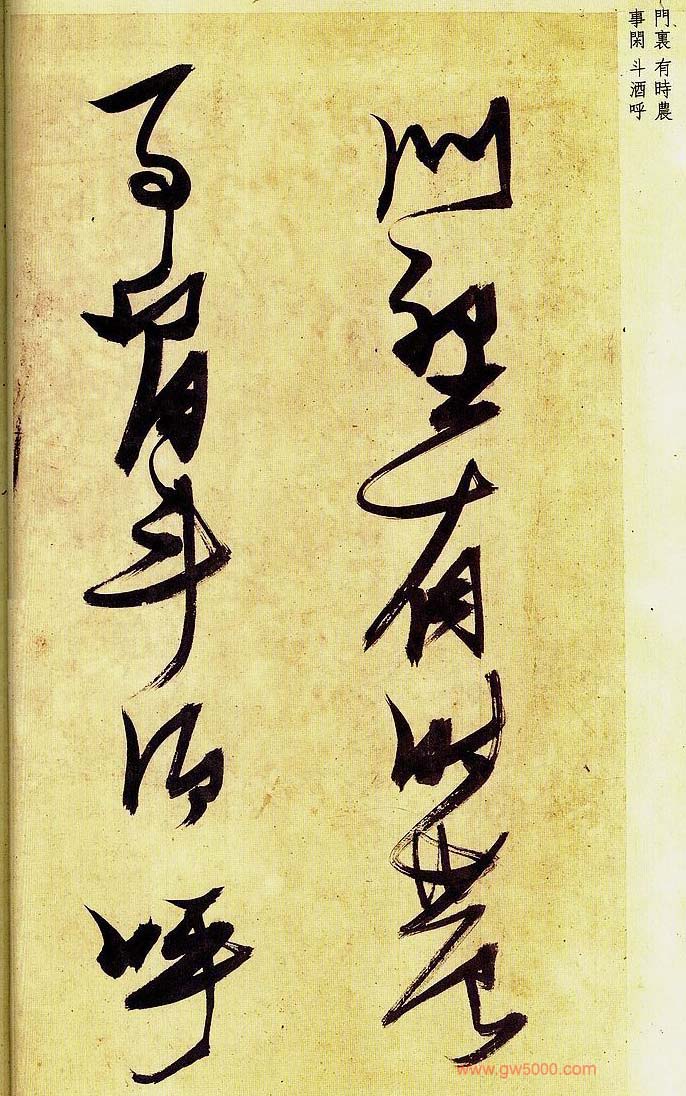 門裏 有時農
事閑 斗酒呼
門裏有時農
事閑斗酒呼
www.gw5000.com